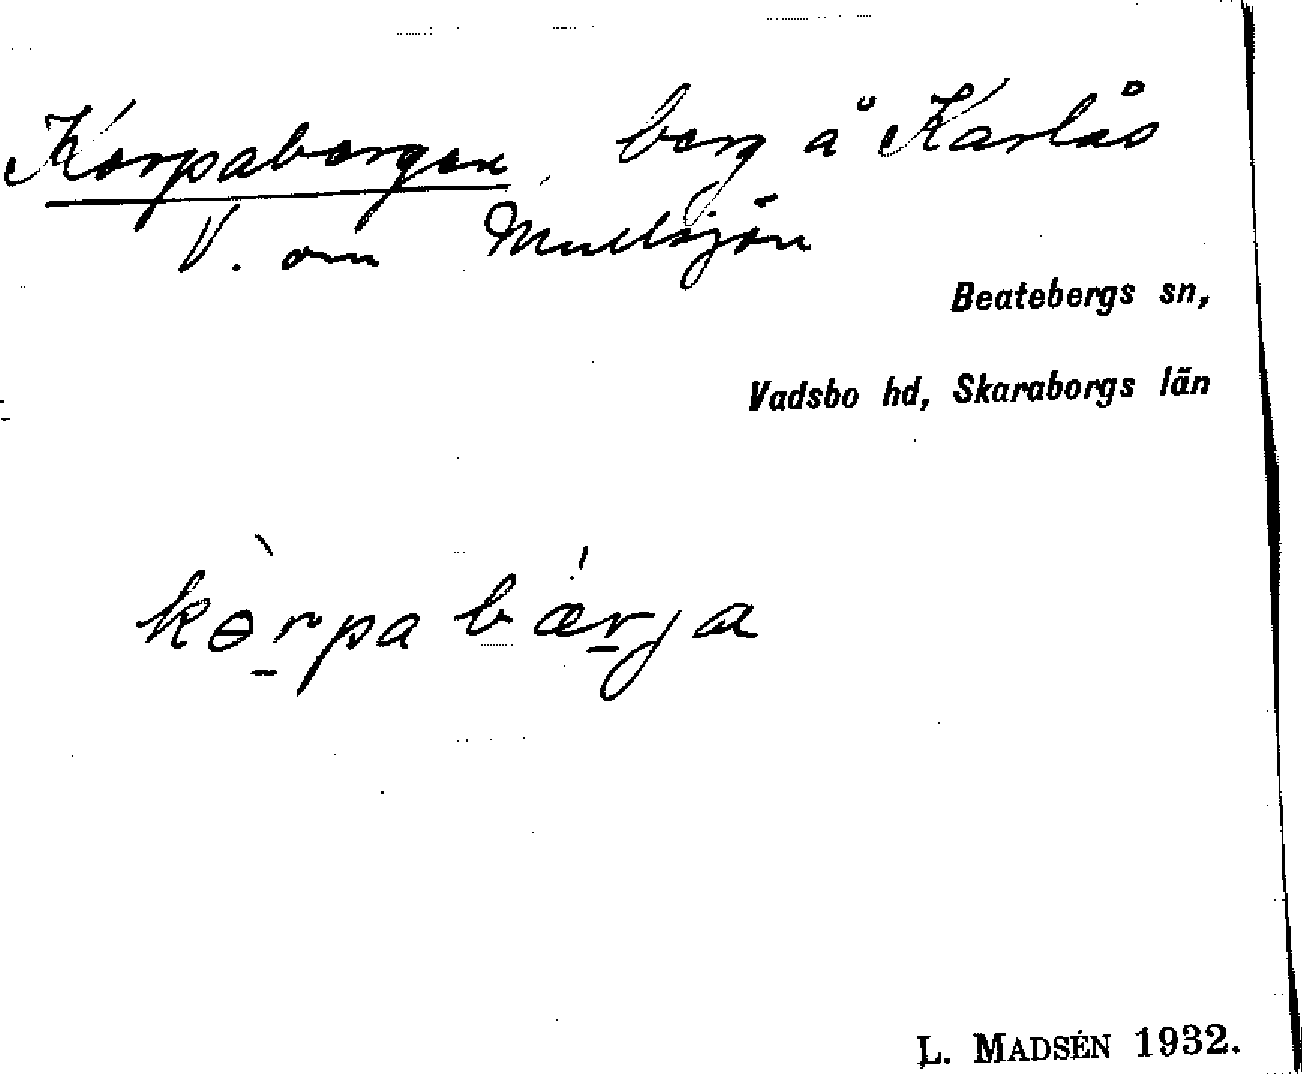 Korpabergen, berg å Karlås
V. om Mullsjön
Beatebergs sn,
Vadsbo hd, Skaraborgs län
kɵ̀rpabǽrja
L. MADSÉN 1932.